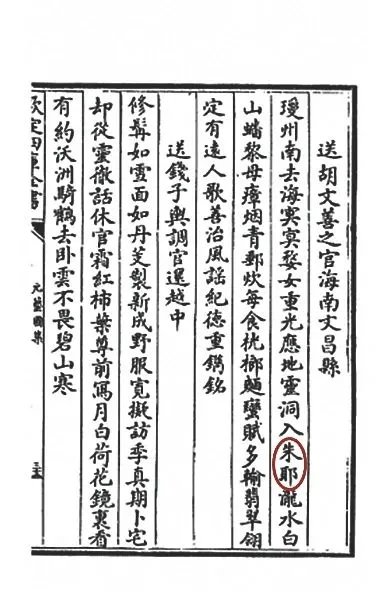 送胡文善之官海南文昌縣
瓊州南去海冥冥婺女重光應地靈洞入朱耶龍水白
山蟠黎母瘴烟青郵炊每食桄榔麵蠻賦多輸翡翠翎
定有遠人歌善治風謡紀徳重鐫銘
送錢子輿調官還越中
修髯如雲面如丹芰製新成野服寛擬訪季真期卜宅
却從靈徹話休官霜紅柿葉尊前寫月白荷花鏡裏看
有約沃洲騎鶴去卧雲不畏碧山寒
欽定四庫全書
元藝圃集